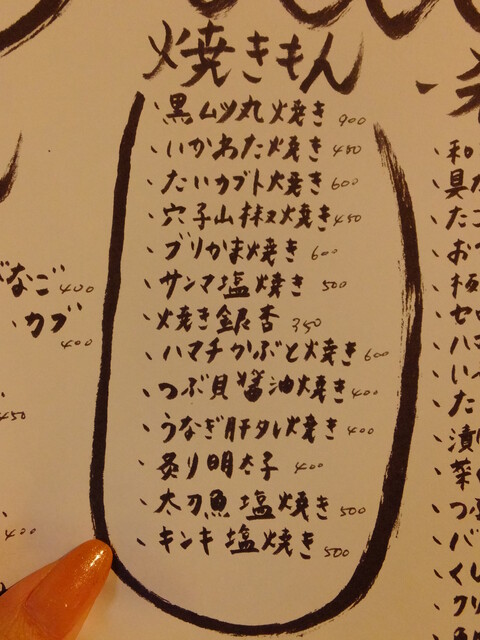 焼きもん
・黒ムツ丸焼き 900
・いかわた焼き 450
・たいカブト焼き 600
・穴子山椒焼き 450
・ブリかま焼き 600
・サンマ塩焼き 500
・焼き銀杏 350
・ハマチかぶと焼き 600
・つぶ貝醤油焼き 400
・うなぎ肝タレ焼き 400
・炙り明太子 400
・太刀魚塩焼き 500
・キンキ塩焼き 500
なご 400
・カブ
400
450
400
・和
・具
・たこ
・お
・極
・セ
・ハ
・い
・た
・漬
・菜
・つ
・バ
・くし
・クリ